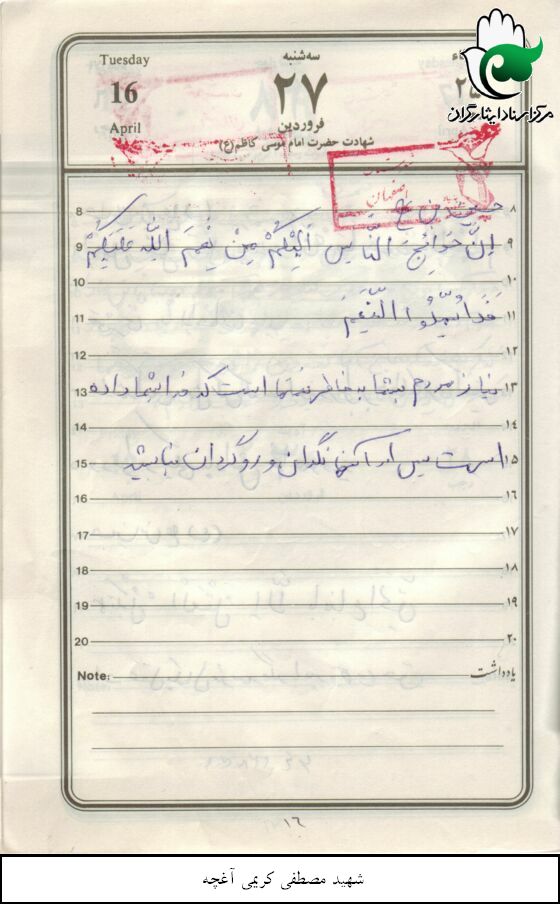 مرکز اسناد ایثارگران
Tuesday
16
April
سه‌شنبه
۲۷
فروردین
شهادت حضرت امام موسی کاظم(ع)
۲۵
اصفهان
8 ۸
اِنَّ حَوائِجَ النّاسِ اِلَیْکُمْ مِنْ نِعَمِ اللّهِ عَلَیْکُمْ
9 ۹
10 ۱۰
فَلا تُمِلُّوا النِّعَمَ
11 ۱۱
12 ۱۲
نیاز مردم بشما به خاطر نعمتها است که خدا بشما داده
13 ۱۳
14 ۱۴
است پس از آنها نگران و روگردان نباشید
15 ۱۵
16 ۱۶
17 ۱۷
18 ۱۸
19 ۱۹
20 ۲۰
Note: یادداشت
۱۶
شهید مصطفی کریمی آغچه